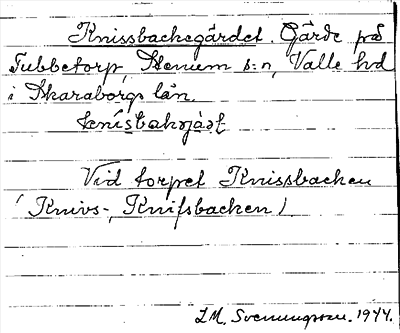 Knissbackegärdet. Gärde på
Tubbetorp, Stenum s:n, Valle hd
i Skaraborgs län.
Vid torpet Knissbacken
(Knivs-, Knifsbacken)
L M, Svenungsson. 1944.